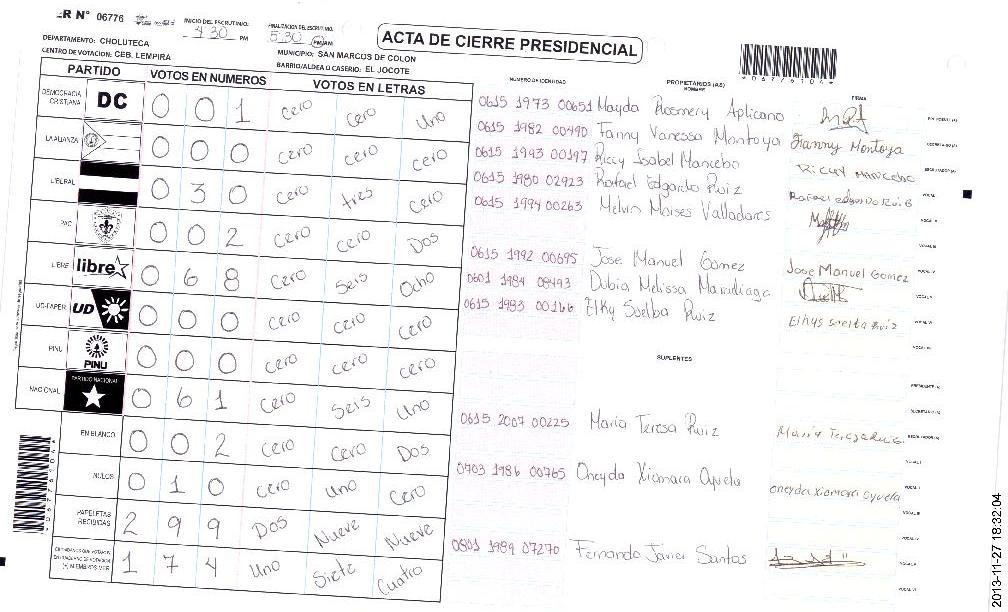 ER N° 06776
INICIO DEL ESCRUTINIO: 4 30 PM
FINALIZACIÓN DEL ESCRUTINIO: 5 30 PM/AM
ACTA DE CIERRE PRESIDENCIAL
*06776104*
DEPARTAMENTO: CHOLUTECA
MUNICIPIO: SAN MARCOS DE COLON
CENTRO DE VOTACION: CEB. LEMPIRA
BARRIO/ALDEA O CASERIO: EL JOCOTE
PARTIDO VOTOS EN NUMEROS VOTOS EN LETRAS
DEMOCRACIA CRISTIANA DC 0 0 1 Cero Cero Uno
LA ALIANZA 0 0 0 Cero Cero Cero
LIBERAL 0 3 0 Cero tres Cero
PAC 0 0 2 Cero Cero Dos
LIBRE libre 0 6 8 Cero Seis Ocho
UD-FAPER UD 0 0 0 Cero Cero Cero
PINU PINU 0 0 0 Cero Cero Cero
NACIONAL PARTIDO NACIONAL 0 6 1 Cero Seis Uno
EN BLANCO 0 0 2 Cero Cero Dos
NULOS 0 1 0 Cero Uno Cero
PAPELETAS RECIBIDAS 2 9 9 Dos Nueve Nueve
1 7 4 Uno Siete Cuatro
NUMERO DE IDENTIDAD PROPIETARIOS (AS) NOMBRE FIRMA
0615 1973 00651 Mayda Rosmery Aplicano
0615 1982 00490 Fanny Vanessa Montoya Fanny Montoya
0615 1993 00197 Riccy Isabel Mancebo Riccy Mancebo
0615 1980 02923 Rafael Edgardo Ruiz Rafael edgardo Ruiz
0615 1994 00263 Melvin Moises Valladares
0615 1992 00695 Jose Manuel Gomez Jose Manuel Gomez
0601 1984 08493 Dubia Melissa
0615 1983 00166 Elky Suelba Ruiz
SUPLENTES
0615 2007 00225 Maria Teresa Ruiz
0703 1986 00765 Oneyda Xiomara Oyuela oneyda xiomara oyuela
0801 1989 07270 Fernando Javier Santos
2013-11-27 18:32:04